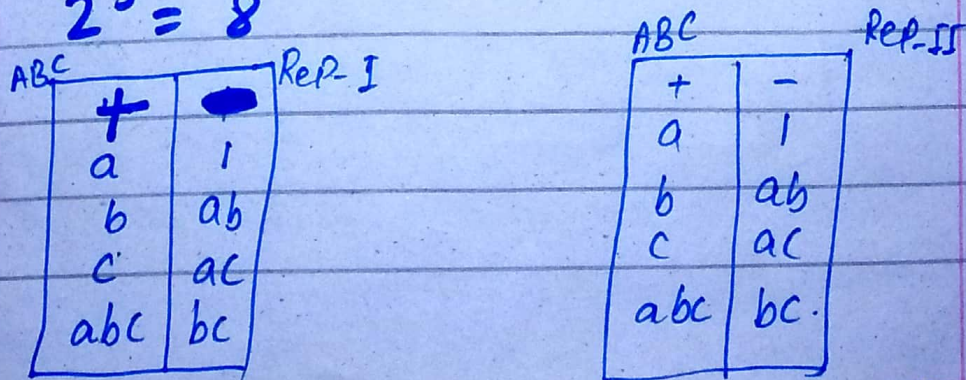 2³ = 8
ABC Rep-I
+ -
a 1
b ab
c ac
abc bc
ABC Rep-II
+ -
a 1
b ab
c ac
abc bc.